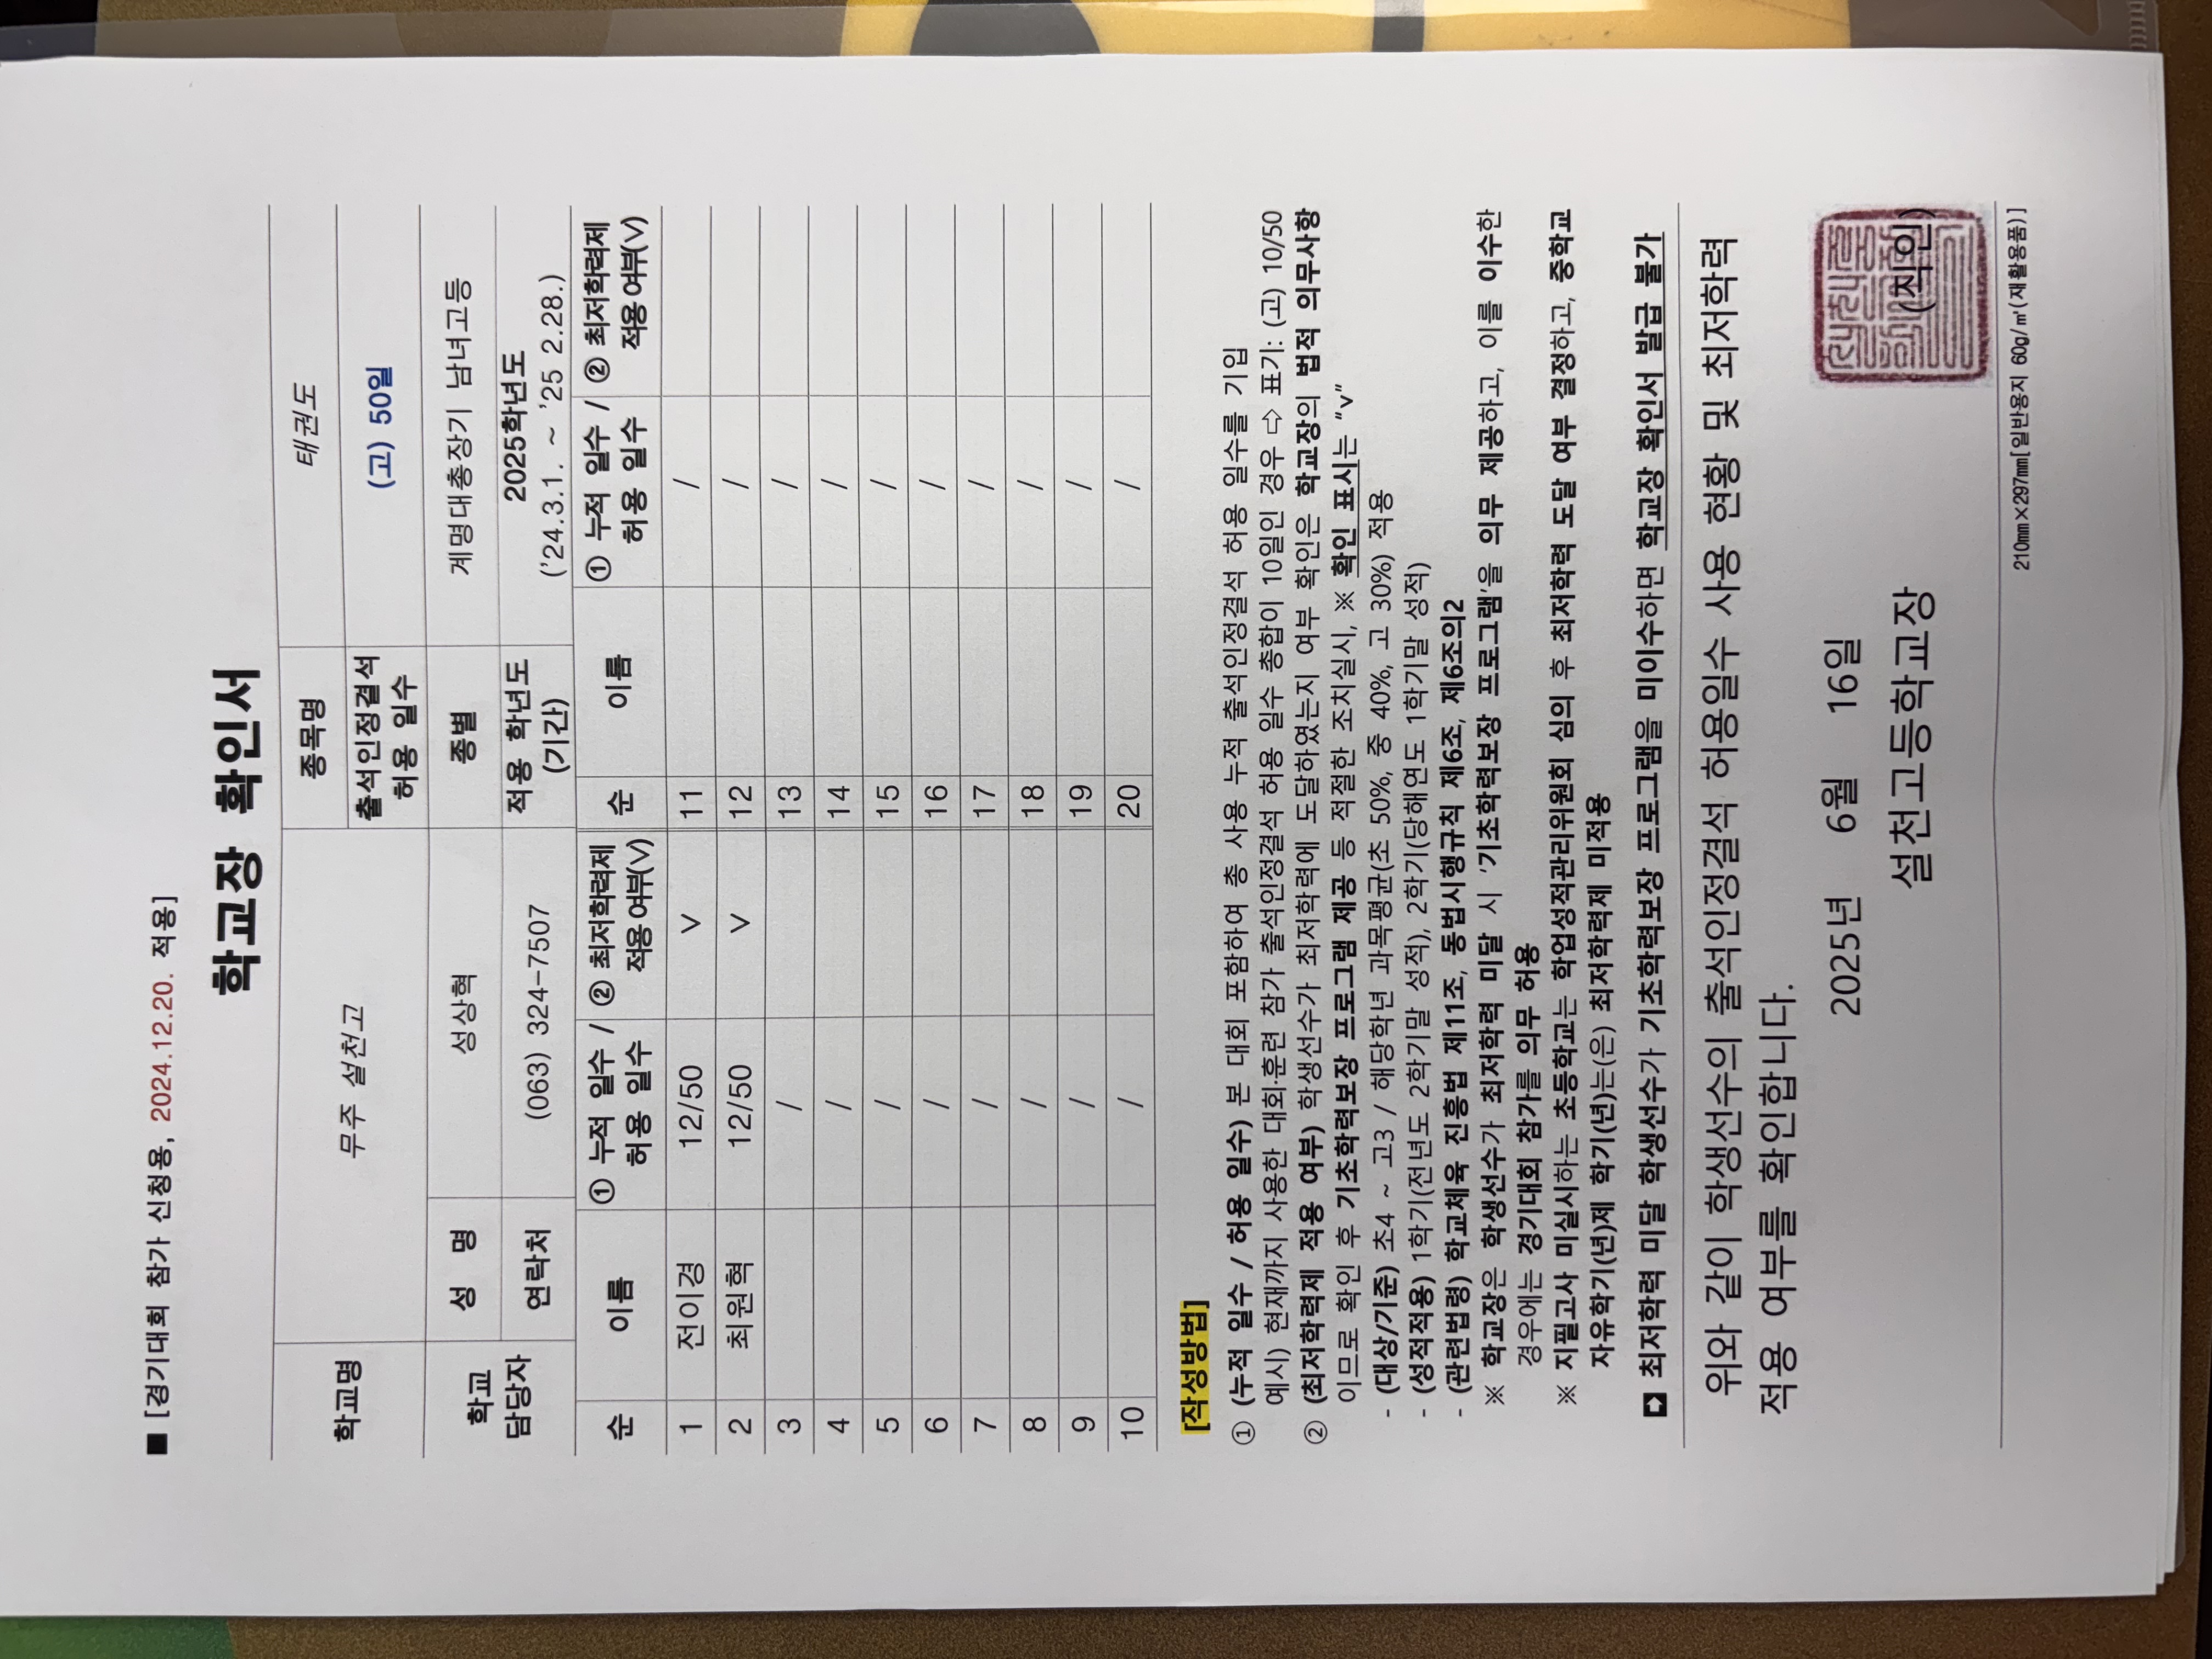 ■ [경기대회 참가 신청용, 2024.12.20. 적용]
학교장 확인서
학교명 무주 설천고 종목명 태권도
출석인정결석 허용 일수 (고) 50일
학교 담당자 성 명 성상혁 종별 계명대총장기 남녀고등
연락처 (063) 324-7507 적용 학년도 (기간) 2025학년도 ('24.3.1. ~ '25 2.28.)
순 이름 ① 누적 일수 / 허용 일수 ② 최저학력제 적용여부(∨) 순 이름 ① 누적 일수 / 허용 일수 ② 최저학력제 적용여부(∨)
1 전이경 12/50 ∨ 11 /
2 최원혁 12/50 ∨ 12 /
3 / 13 /
4 / 14 /
5 / 15 /
6 / 16 /
7 / 17 /
8 / 18 /
9 / 19 /
10 / 20 /
[작성방법]
① (누적 일수 / 허용 일수) 본 대회 포함하여 총 사용 누적 출석인정결석 허용 일수를 기입
예시) 현재까지 사용한 대회·훈련 참가 출석인정결석 허용 일수 총합이 10일인 경우 ⇨ 표기: (고) 10/50
② (최저학력제 적용 여부) 학생선수가 최저학력에 도달하였는지 여부 확인은 학교장의 법적 의무사항
이므로 확인 후 기초학력보장 프로그램 제공 등 적절한 조치실시, ※ 확인 표시는 "v"
- (대상/기준) 초4 ~ 고3 / 해당학년 과목평균(초 50%, 중 40%, 고 30%) 적용
- (성적적용) 1학기(전년도 2학기말 성적), 2학기(당해연도 1학기말 성적)
- (관련법령) 학교체육 진흥법 제11조, 동법시행규칙 제6조, 제6조의2
※ 학교장은 학생선수가 최저학력 미달 시 '기초학력보장 프로그램'을 의무 제공하고, 이를 이수한
경우에는 경기대회 참가를 의무 허용
※ 지필고사 미실시하는 초등학교는 학업성적관리위원회 심의 후 최저학력 도달 여부 결정하고, 중학교
자유학기(년)제 학기(년)는(은) 최저학력제 미적용
➲ 최저학력 미달 학생선수가 기초학력보장 프로그램을 미이수하면 학교장 확인서 발급 불가
위와 같이 학생선수의 출석인정결석 허용일수 사용 현황 및 최저학력
적용 여부를 확인합니다.
2025년 6월 16일
설천고등학교장 (직인)
210㎜×297㎜[일반용지 60g/㎡(재활용품)]